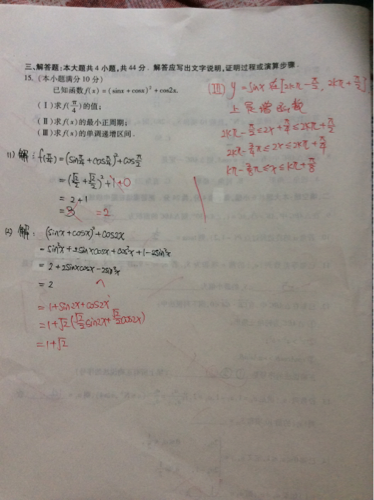 三、解答题：本大题共4小题，共44分．解答应写出文字说明，证明过程或演算步骤．
15．（本小题满分10分）
已知函数f(x)=(sinx+cosx)²+cos2x.
（Ⅰ）求f(π/4)的值；
（Ⅱ）求f(x)的最小正周期；
（Ⅲ）求f(x)的单调递增区间．
(1) 解：f(π/4)=(sinπ/4+cosπ/4)²+cosπ/2
=(√2/2+√2/2)²+1+0
= 2+1
=3 =2
(2) 解： (sinx+cosx)²+cos2x
=sin²x+2sinxcosx+cos²x+1-2sin²x
= 2+2sinxcosx-2sin²x
= 2
= 1+sin2x+cos2x
= 1+√2(√2/2sin2x+√2/2cos2x)
= 1+√2
(III) y=sinx在[2kπ-π/2, 2kπ+π/2]
上是增函数
2kπ-π/2≤2x+π/4≤2kπ+π/2
2kπ-3π/4≤2x≤2kπ+π/4
kπ-3π/8≤x≤kπ+π/8